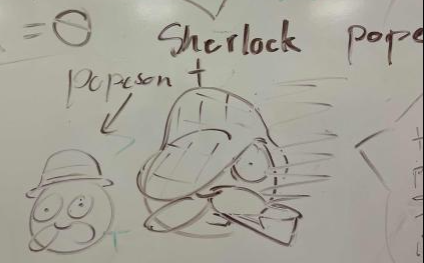 = 0
Sherlock pope
popeson t